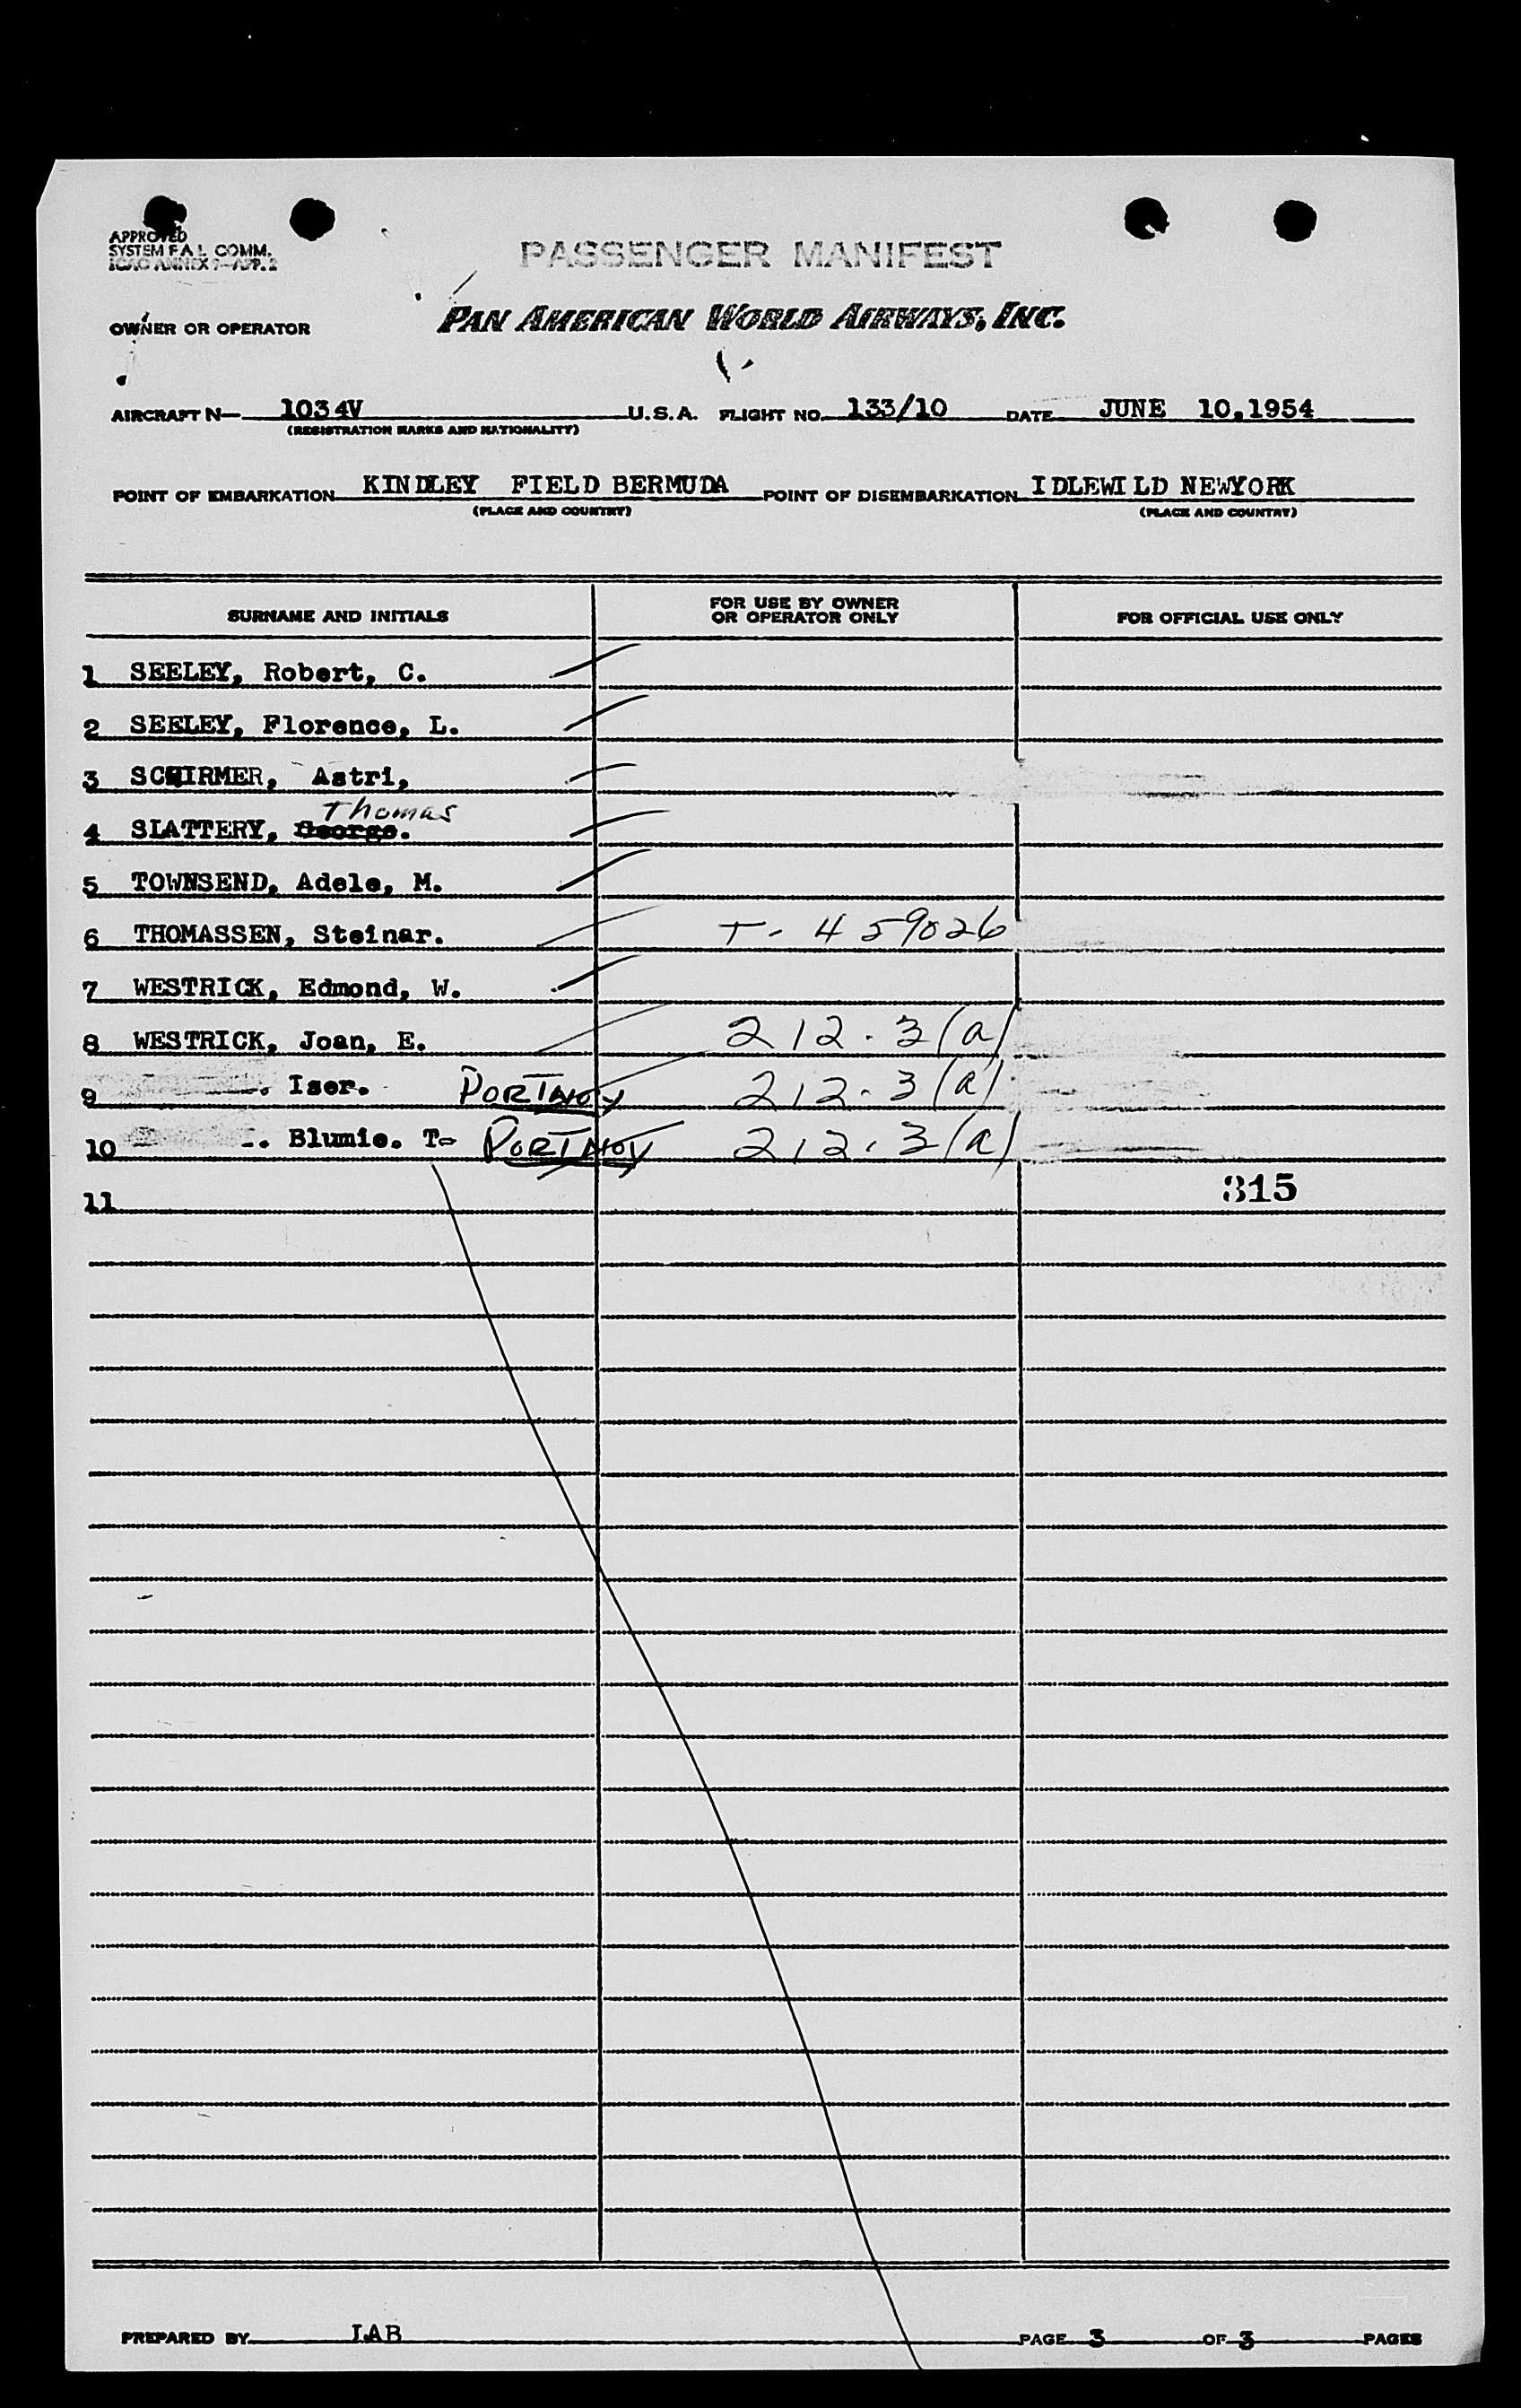 APPROVED
SYSTEM F.A.L. COMM.
ICAO ANNEX 9-APP. 2
PASSENGER MANIFEST
OWNER OR OPERATOR PAN AMERICAN WORLD AIRWAYS, INC.
AIRCRAFT N- 1034V U.S.A. FLIGHT NO. 133/10 DATE JUNE 10,1954
(REGISTRATION MARKS AND NATIONALITY)
POINT OF EMBARKATION KINDLEY FIELD BERMUDA POINT OF DISEMBARKATION IDLEWILD NEWYORK
(PLACE AND COUNTRY) (PLACE AND COUNTRY)
SURNAME AND INITIALS FOR USE BY OWNER OR OPERATOR ONLY FOR OFFICIAL USE ONLY
1 SEELEY, Robert, C.
2 SEELEY, Florence, L.
3 SCHIRMER, Astri,
Thomas
4 SLATTERY, George.
5 TOWNSEND, Adele, M.
6 THOMASSEN, Steinar. T- 459026
7 WESTRICK, Edmond, W.
8 WESTRICK, Joan, E. 212.3(a)
9 Iser. PORTNOY 212.3(a)
10 Blumie. T- PORTNOY 212.3(a)
11 315
PREPARED BY IAB PAGE 3 OF 3 PAGES